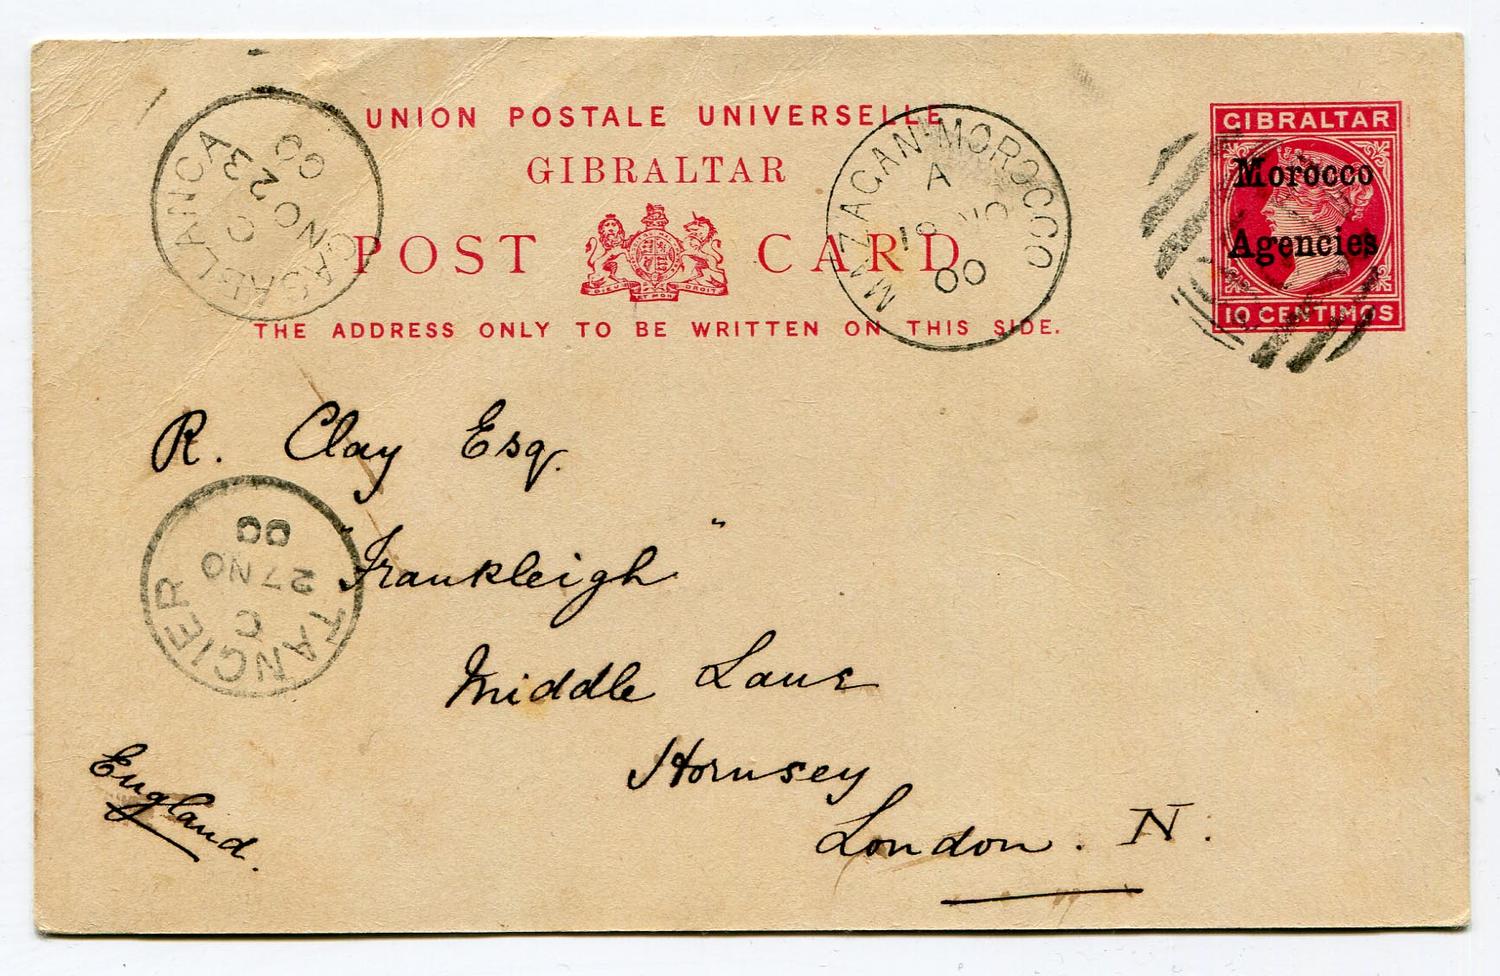 UNION POSTALE UNIVERSELLE
GIBRALTAR
POST CARD
DIEU ET MON DROIT
THE ADDRESS ONLY TO BE WRITTEN ON THIS SIDE.
GIBRALTAR
Morocco
Agencies
10 CENTIMOS
CASABLANCA
C
NO 23
00
MAZAGAN MOROCCO
A
NO
00
R. Clay Esq.
"Frankleigh"
Middle Lane
Hornsey
London. N.
England.
TANGIER
C
27 NO
00